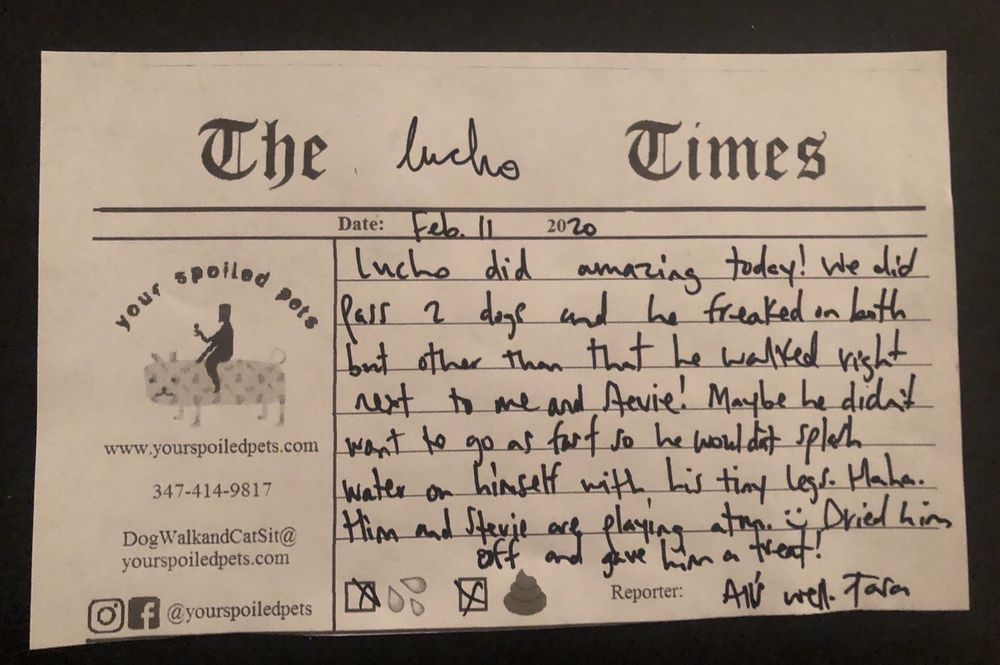 The lucho Times
Date: Feb. 11 2020
your spoiled pets
www.yourspoiledpets.com
347-414-9817
DogWalkandCatSit@
yourspoiledpets.com
@yourspoiledpets
lucho did amazing today! We did
pass 2 dogs and he freaked on both
but other than that he walked right
next to me and Stevie! Maybe he didn't
want to go as fast so he wouldn't splash
water on himself with his tiny legs. Haha.
Him and Stevie are playing atm. Dried him
off and gave him a treat!
Reporter: All's well. Tara